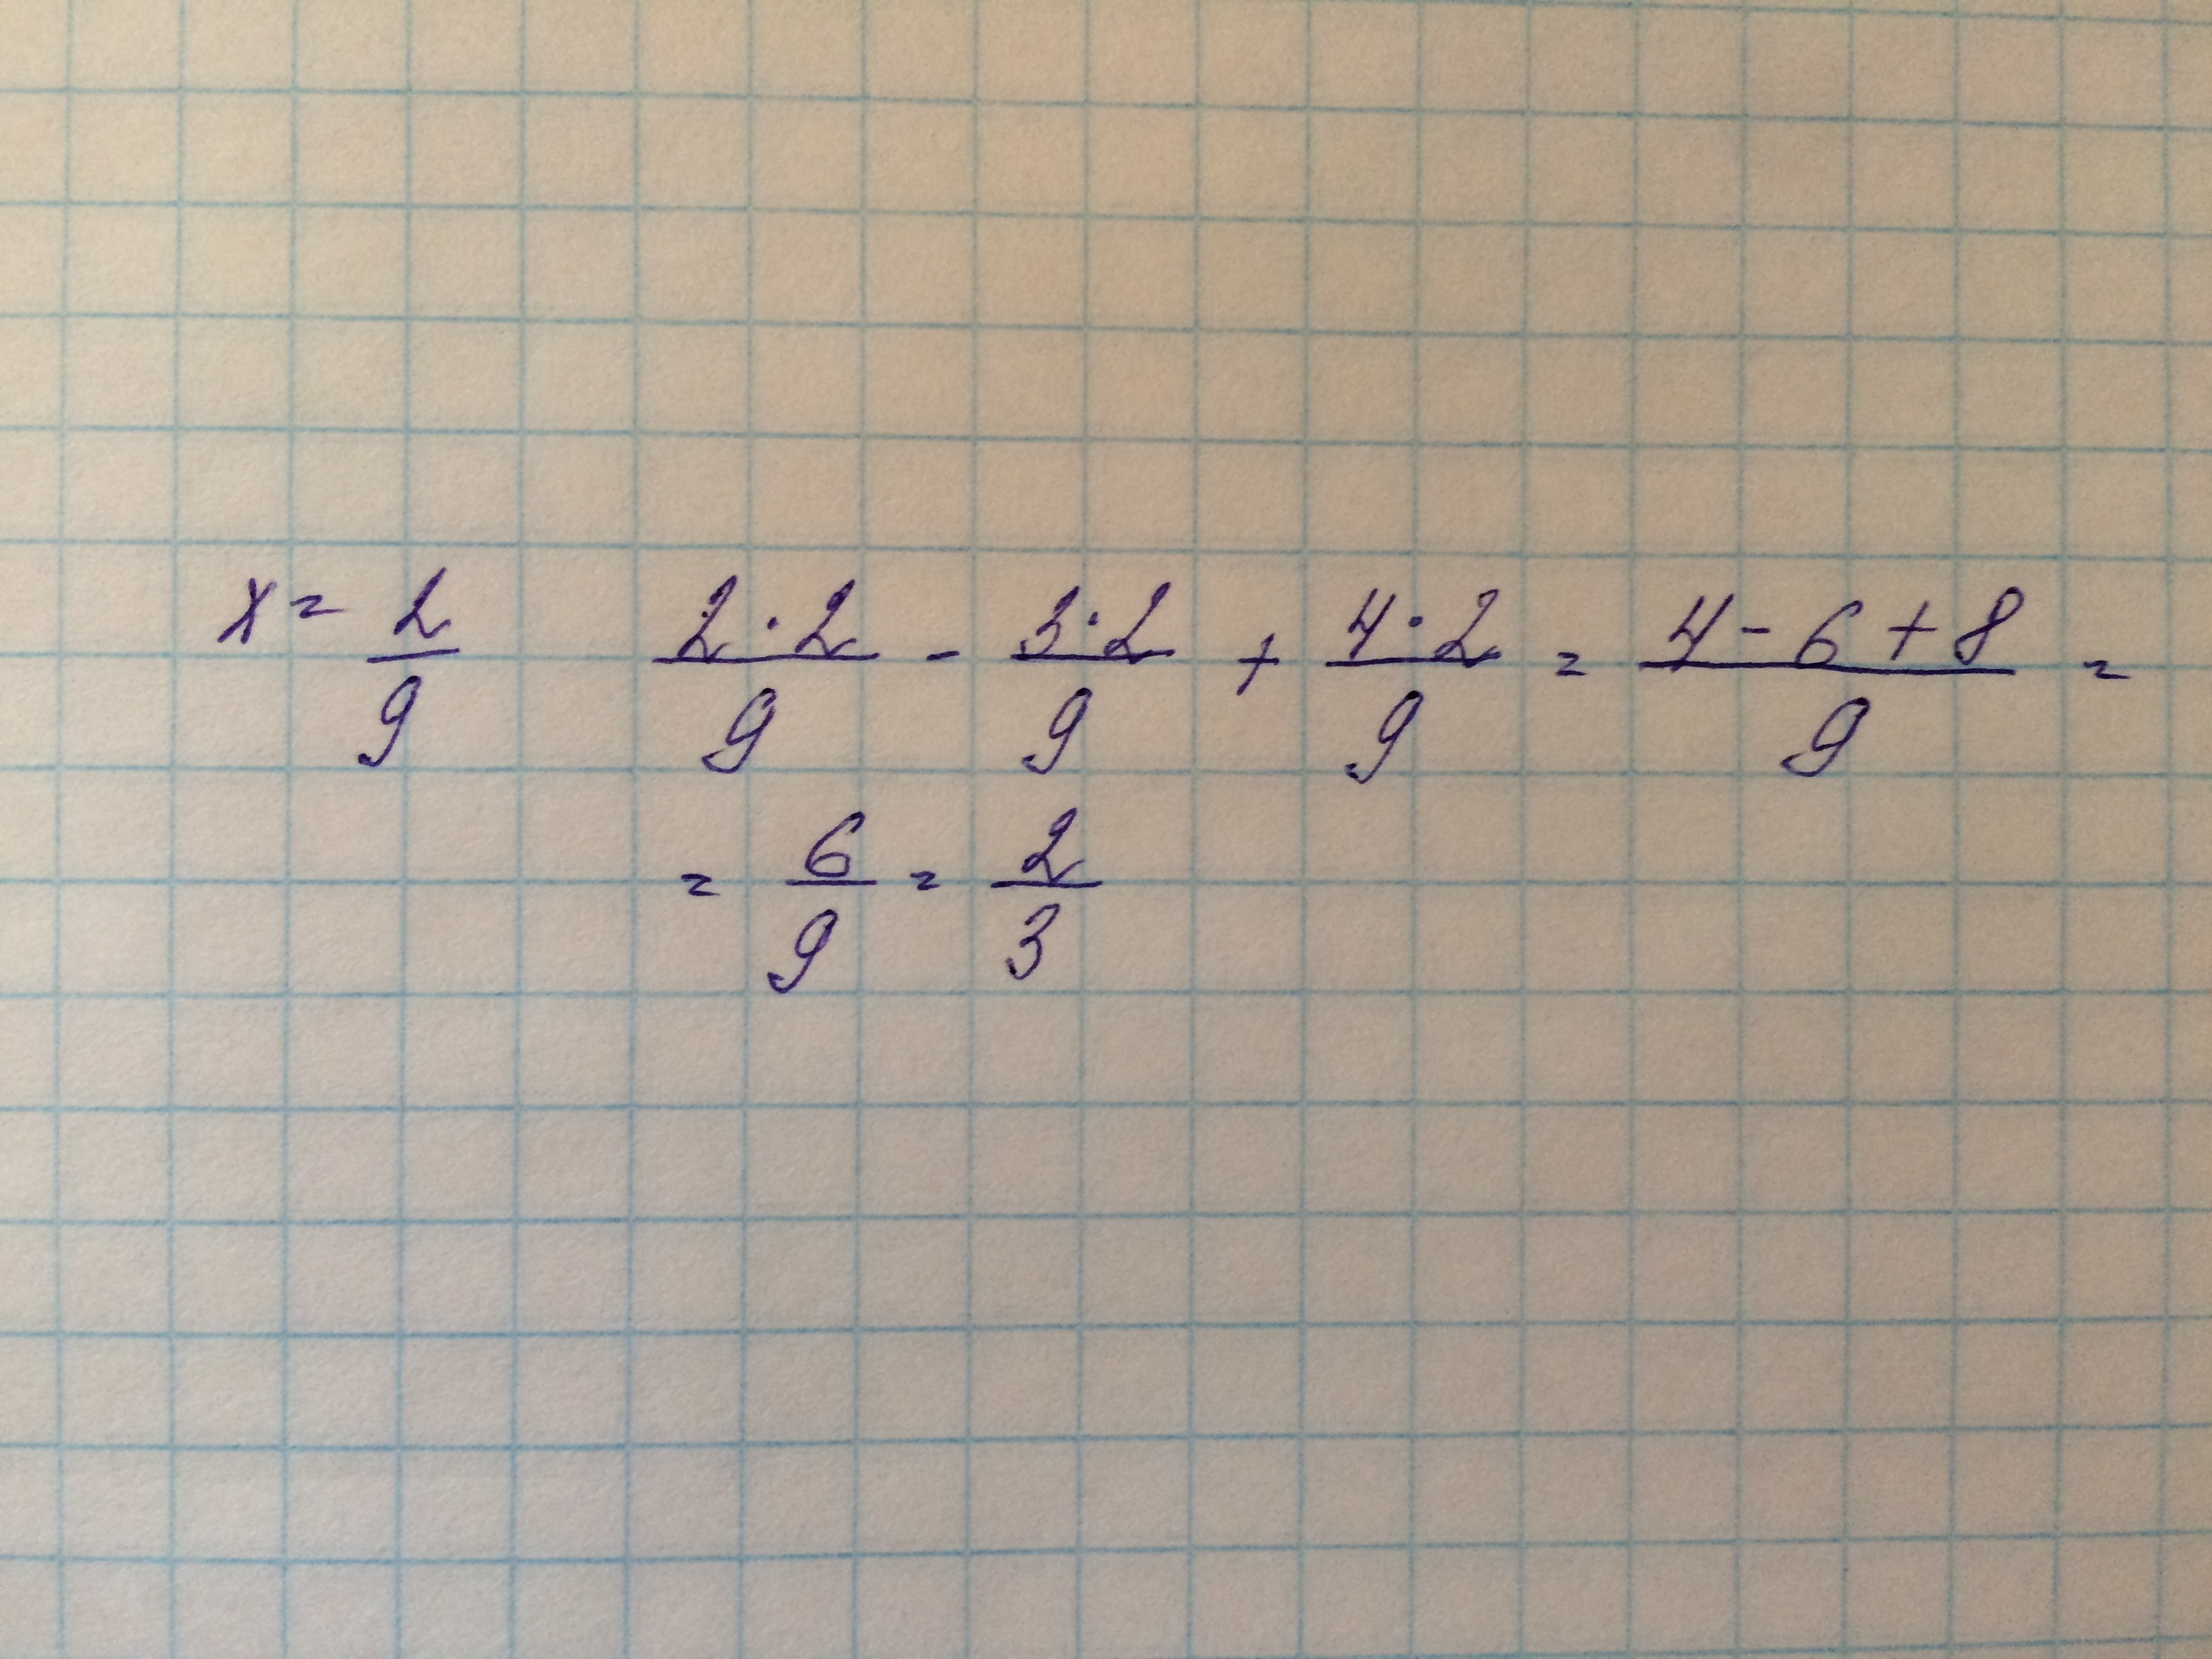 x = 2/9   2·2/9 - 3·2/9 + 4·2/9 = 4-6+8/9 =
= 6/9 = 2/3